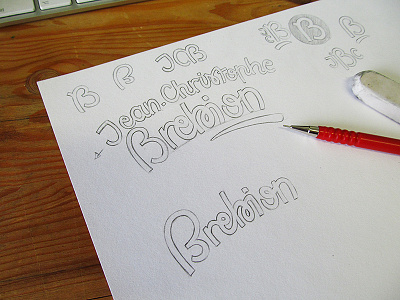 B B JCB
B B B
Jean-Christophe
Brebion
Brebion